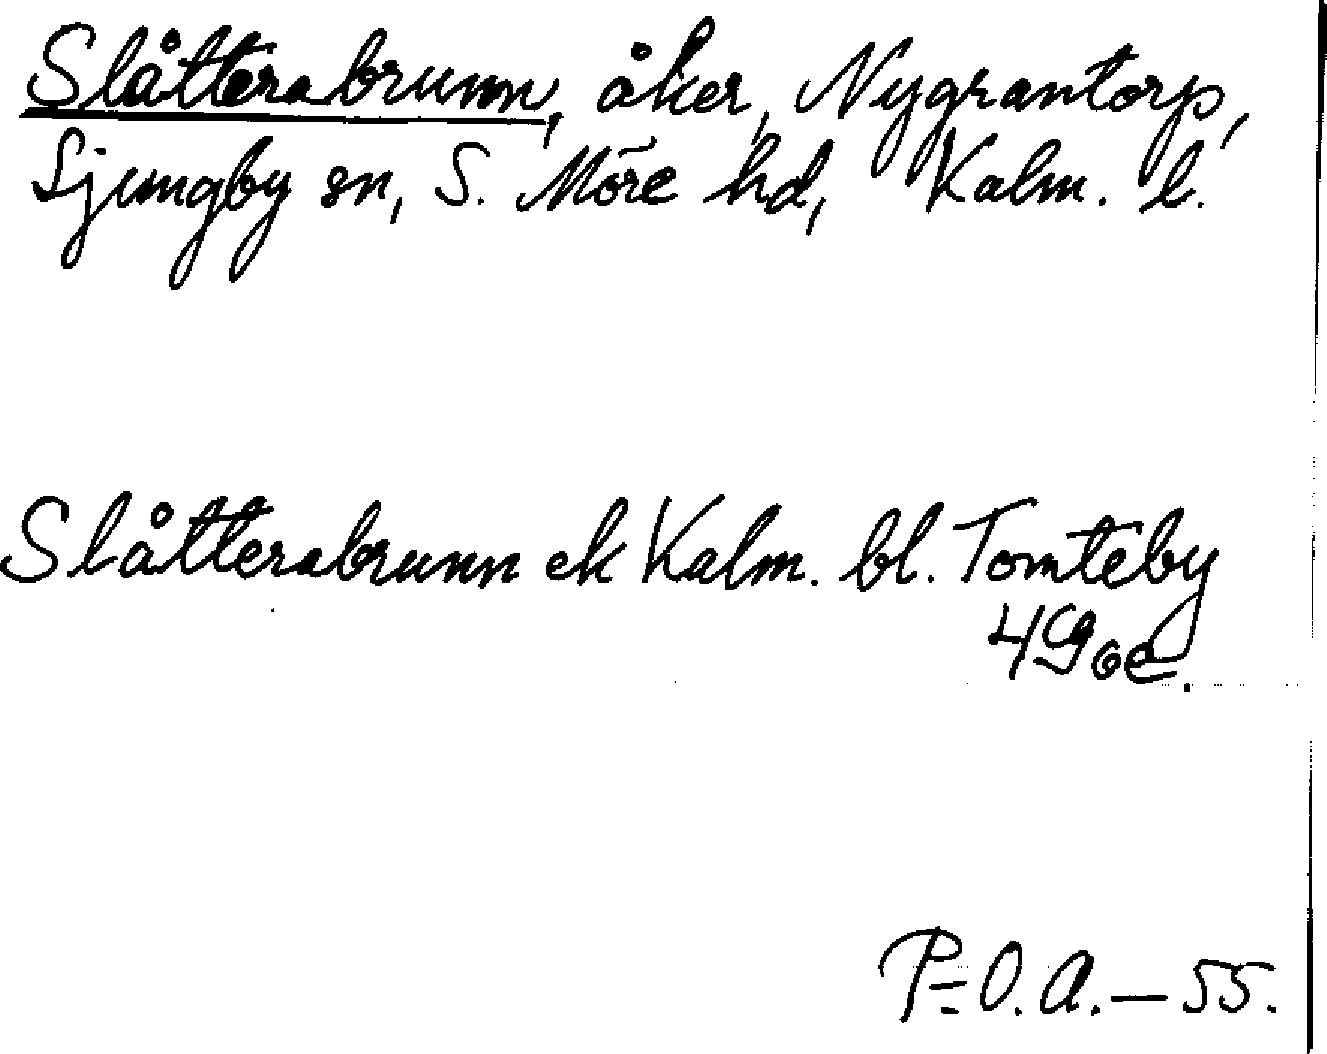 Slåtterabrunn, åker, Nygrantorp,
Ljungby sn, S. Möre hd, Kalm. l.
Slåtterabrunn ek Kalm. bl. Tomteby
4 G o e.
P-O. A. — 55.